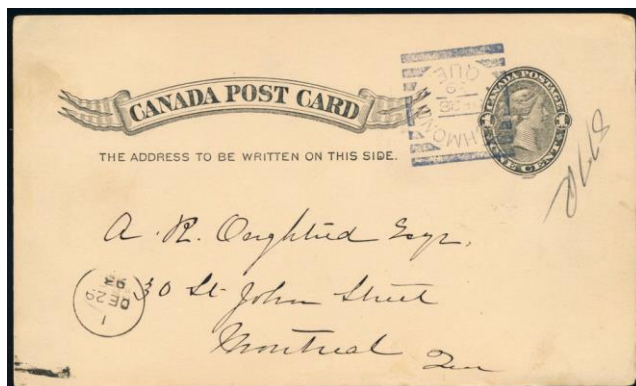 CANADA POST CARD
THE ADDRESS TO BE WRITTEN ON THIS SIDE.
CANADA POSTAGE
ONE CENT
QUE
A. R. Esqr.
30 St. John Street
Montreal Que
1
DE 29
93